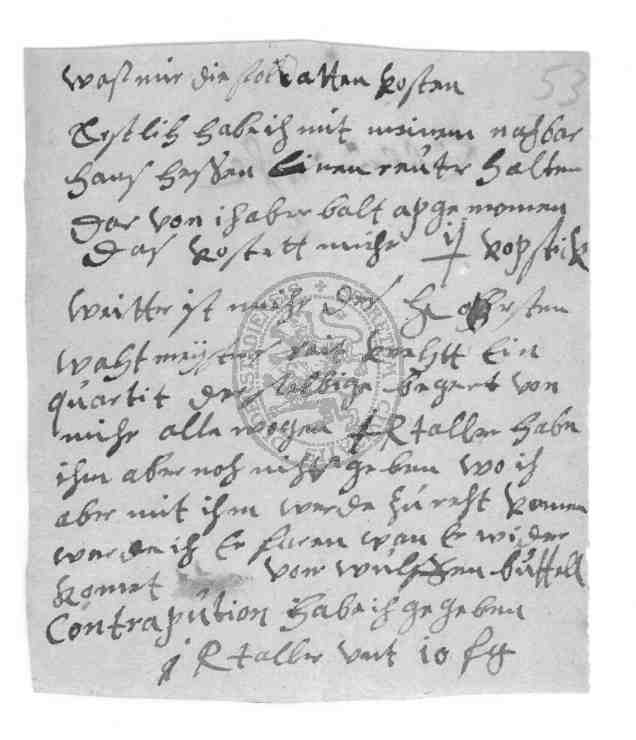 53
waß mir die soldatten kosten
Erstlih habe ih mit meinem nahbar
hans hessen Einen reüter halten
dar von ih aber balt apgenomen
das kostett mihr kopstik
weitter ist mihr des obersten
wahtmeysters knehtt Ein
quartit derselbige begert von
mihr alle wochen 1 R taller habe
ihm aber noh niht gegeben wo ih
aber mit ihm werde zu reht komen
werde ih Erfaren wan Er wider
komet von wulffenbüttell
Contrapution habe ih gegeben
1 R taller unt 10 sg